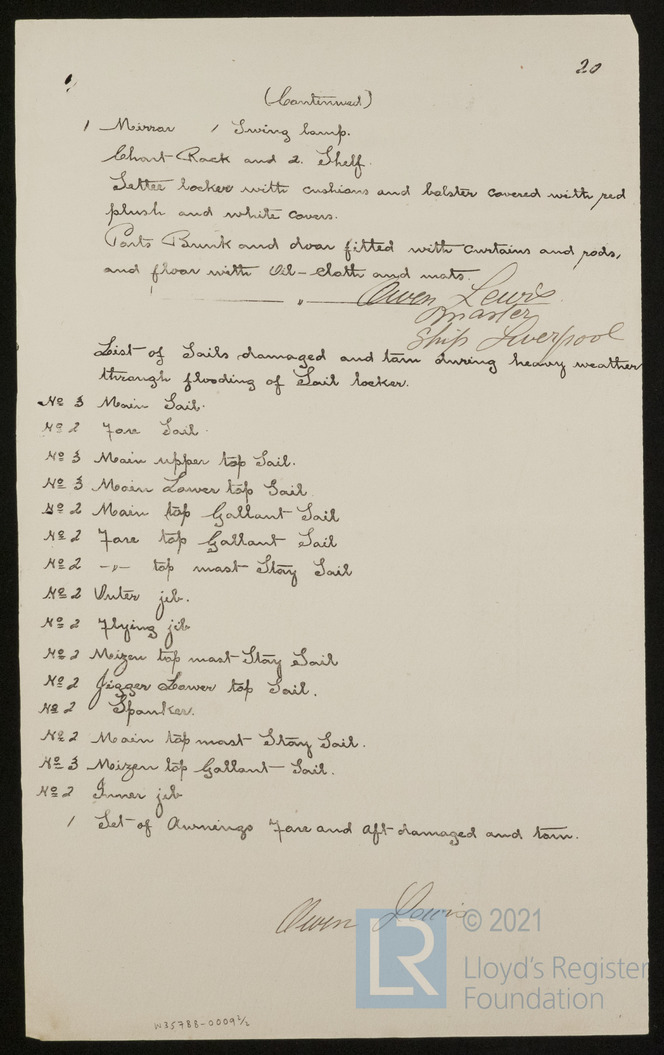 20
(Continued)
1 Mirrar 1 Swing lamp.
Chart Rack and 2. Shelf.
Setter locker with cushions and bolster covered with red
plush and white covers.
Ports Bunk and doar fitted with curtains and rods,
and floar with Oil-cloth and mats.
"
Owen Lewis
Master
Ship Liverpool
List of Sails damaged and tarn during heavy weather
through flooding of Sail locker.
No 3 Main Sail.
No 2 Fore Sail.
No 3 Main upper top Sail.
No 3 Main Lower top Sail
No 2 Main top Gallant Sail
No 2 Fore top Gallant Sail
No 2 -"- top mast Stay Sail
No 2 Outer jib.
No 2 Flying jib
No 2 Mizen top mast Stay Sail
No 2 Jigger Lower top Sail.
No 2 Spanker.
No 2 Main top mast Stay Sail.
No 3 Mizen top Gallant Sail.
No 2 Inner jib
1 Set of Awnings Fore and Aft damaged and tarn.
Owen Lewis
LR © 2021
Lloyd's Register
Foundation
W35788-0009 2/2